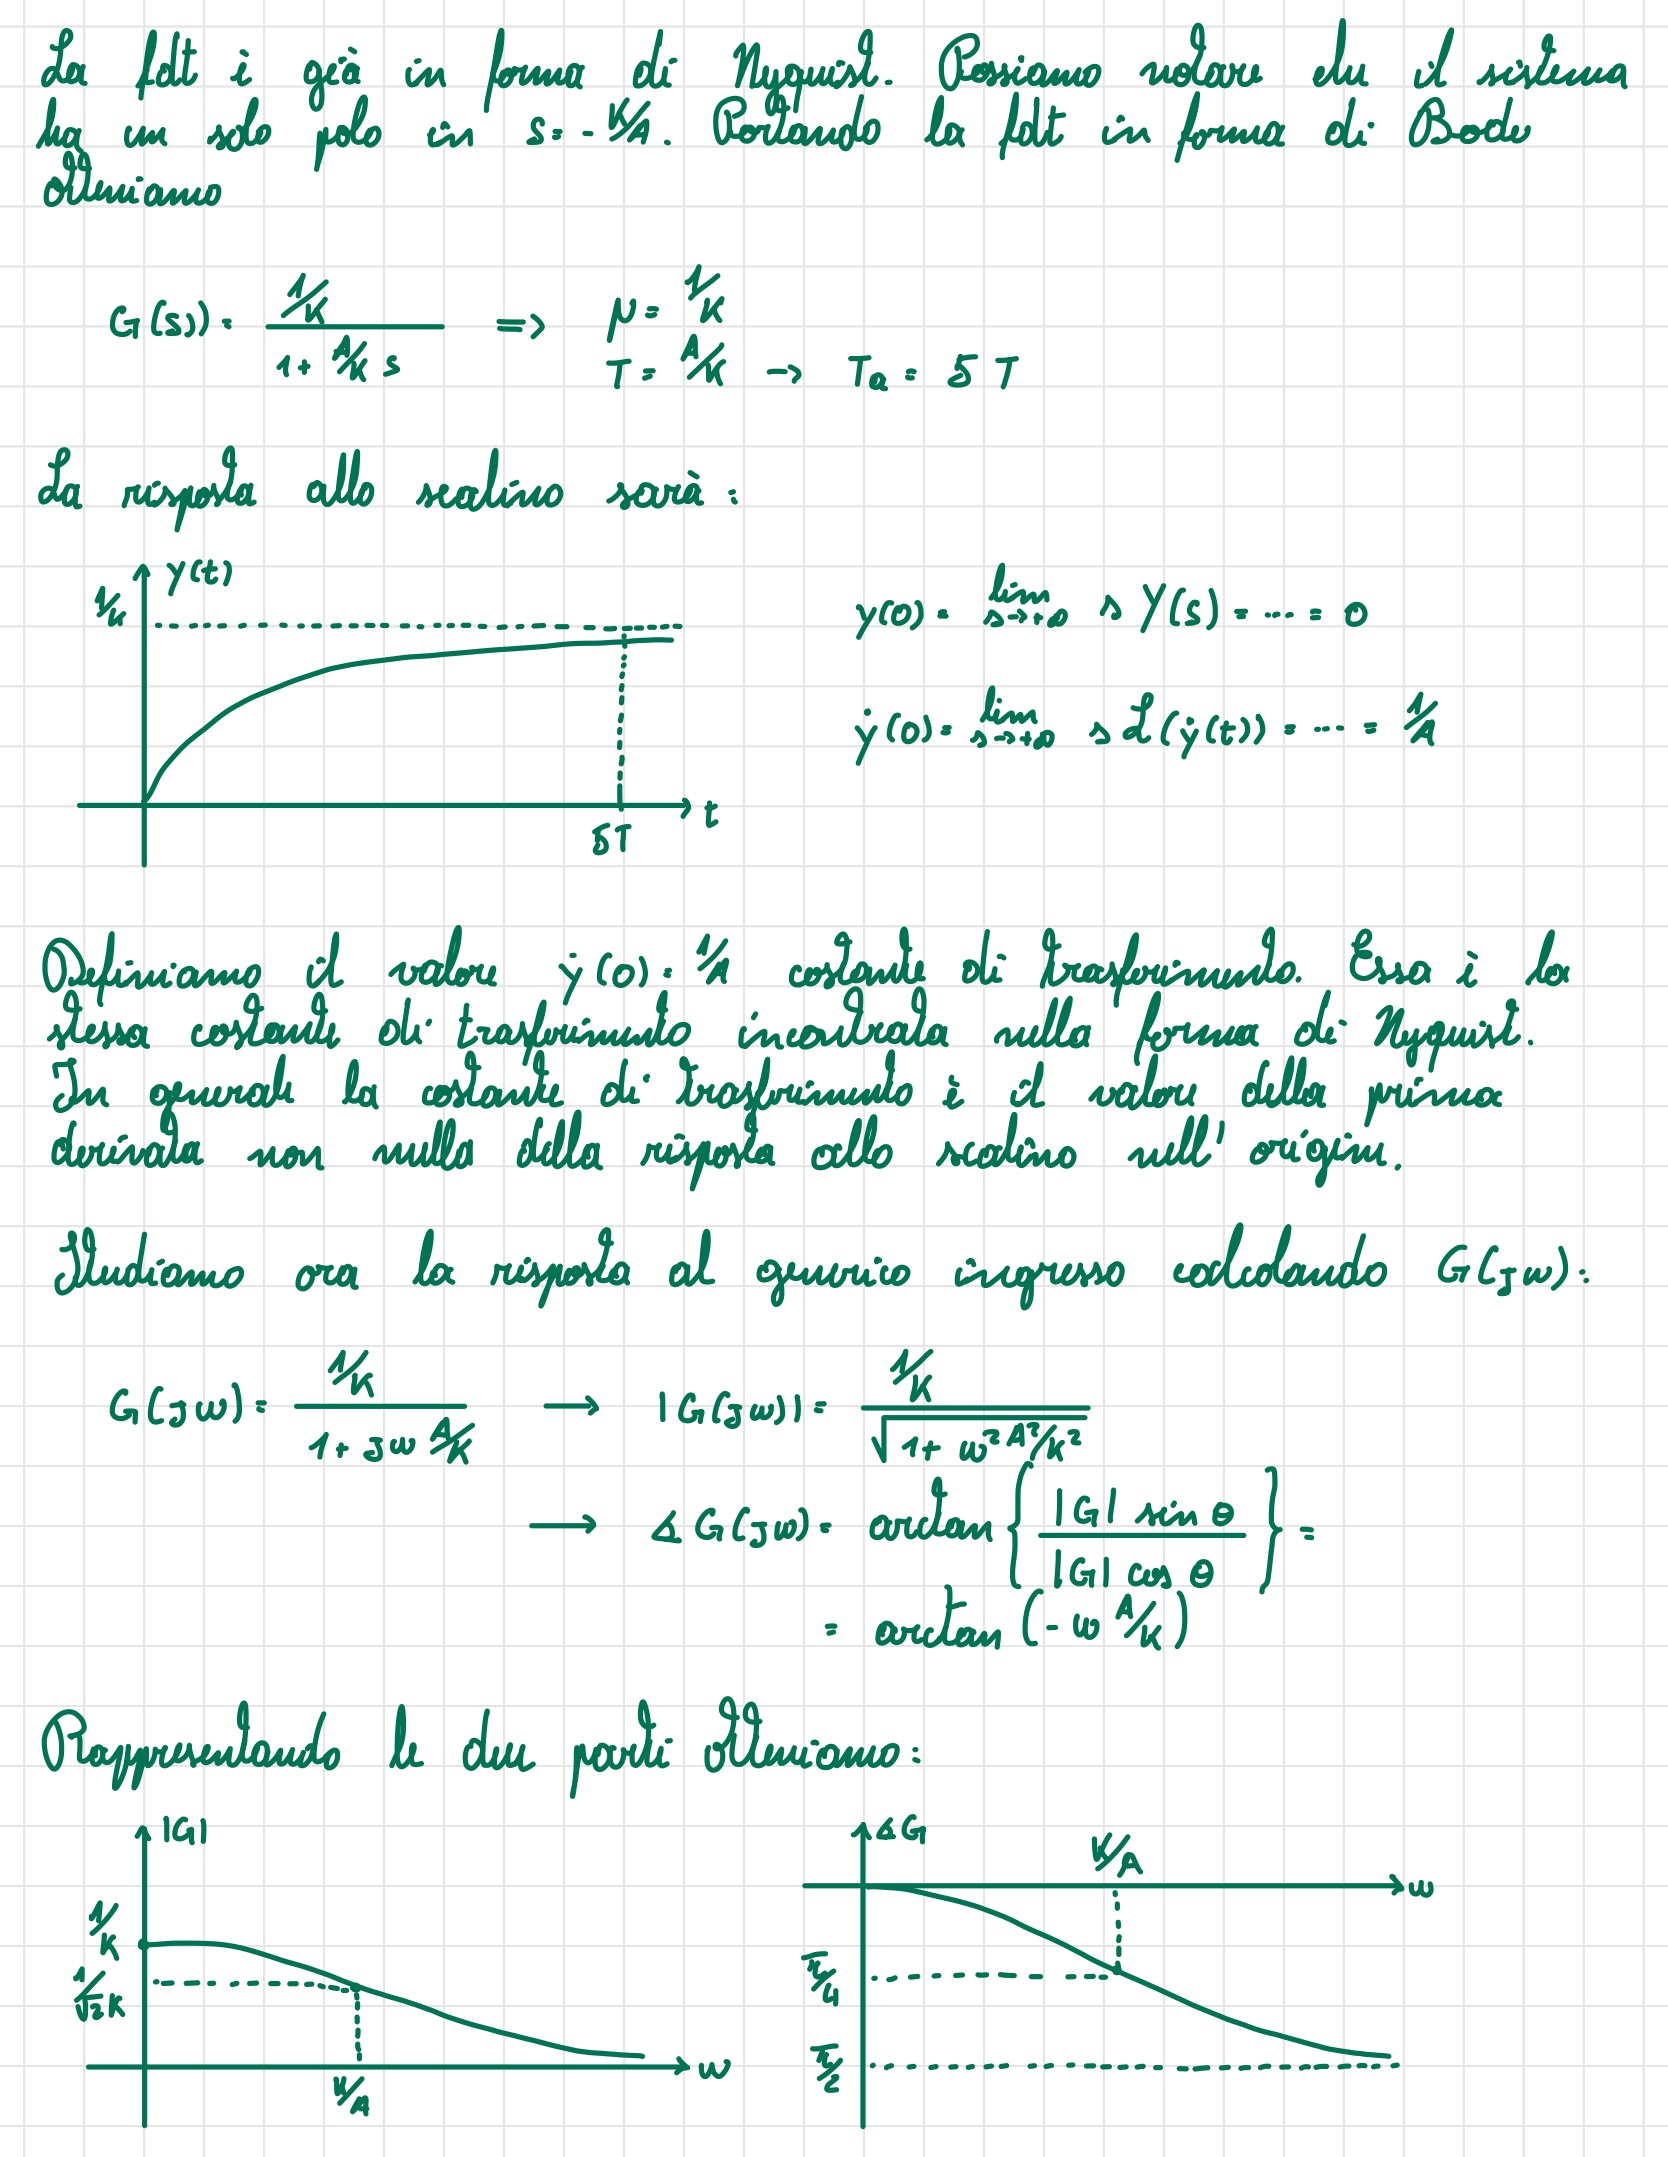 La fdt è già in forma di Nyquist. Possiamo notare che il sistema
ha un solo polo in s = - K/A. Portando la fdt in forma di Bode
otteniamo
G(s) = (1/K) / (1 + A/K s) => μ = 1/K
T = A/K -> Ta = 5T
La risposta allo scalino sarà:
y(t)
1/K
5T
t
y(0) = lim s→+∞ s Y(s) = ... = 0
ẏ(0) = lim s→+∞ s ℒ(ẏ(t)) = ... = 1/A
Definiamo il valore ẏ(0) = 1/A costante di trasferimento. Essa è la
stessa costante di trasferimento incontrata nella forma di Nyquist.
In generale la costante di trasferimento è il valore della prima
derivata non nulla della risposta allo scalino nell'origine.
Studiamo ora la risposta al generico ingresso calcolando G(jω):
G(jω) = (1/K) / (1 + jω A/K) → |G(jω)| = (1/K) / √(1 + ω² A²/K²)
→ ∡G(jω) = arctan { |G| sin θ / |G| cos θ } =
= arctan (-ω A/K)
Rappresentando le due parti otteniamo:
|G|
1/K
1/√2K
K/A
ω
∡G
K/A
ω
π/4
π/2